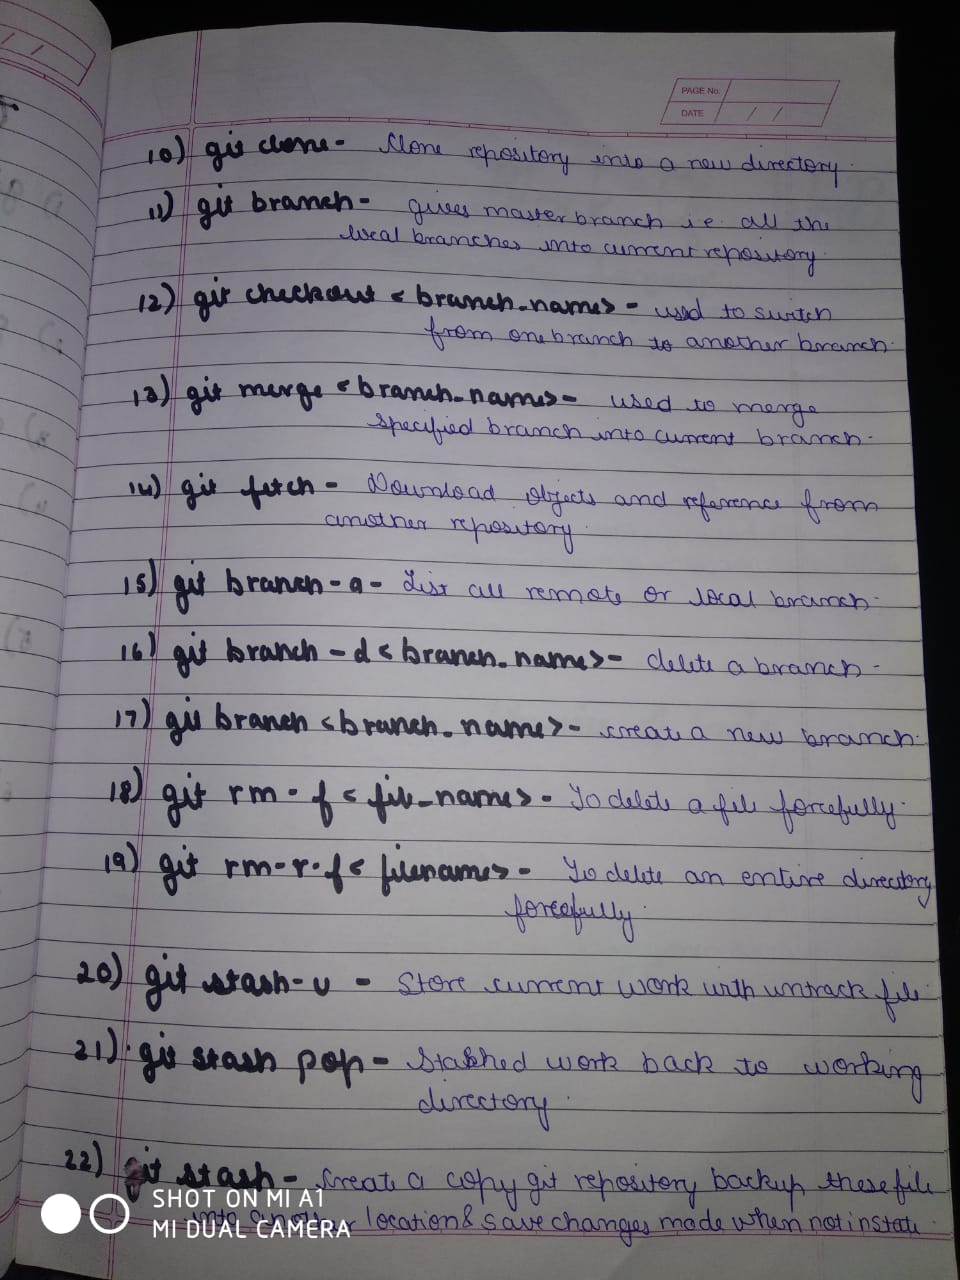 PAGE No.
DATE / /
10) git clone - Clone repository into a new directory.
11) git branch - gives master branch i.e. all the
local branches into current repository.
12) git checkout <branch_name> - used to switch
from one branch to another branch.
13) git merge <branch_name> - used to merge
specified branch into current branch.
14) git fetch - Download objects and reference from
another repository.
15) git branch -a - List all remote or local branch.
16) git branch -d <branch_name> - delete a branch.
17) git branch <branch_name> - create a new branch.
18) git rm -f <file_name> - To delete a file forcefully.
19) git rm -r -f <filename> - To delete an entire directory
forcefully.
20) git stash -u - Store current work with untrack file.
21) git stash pop - Stashed work back to working
directory.
22) git stash - Create a copy git repository backup these file
into location & save changes made when not in state.
SHOT ON MI A1
MI DUAL CAMERA